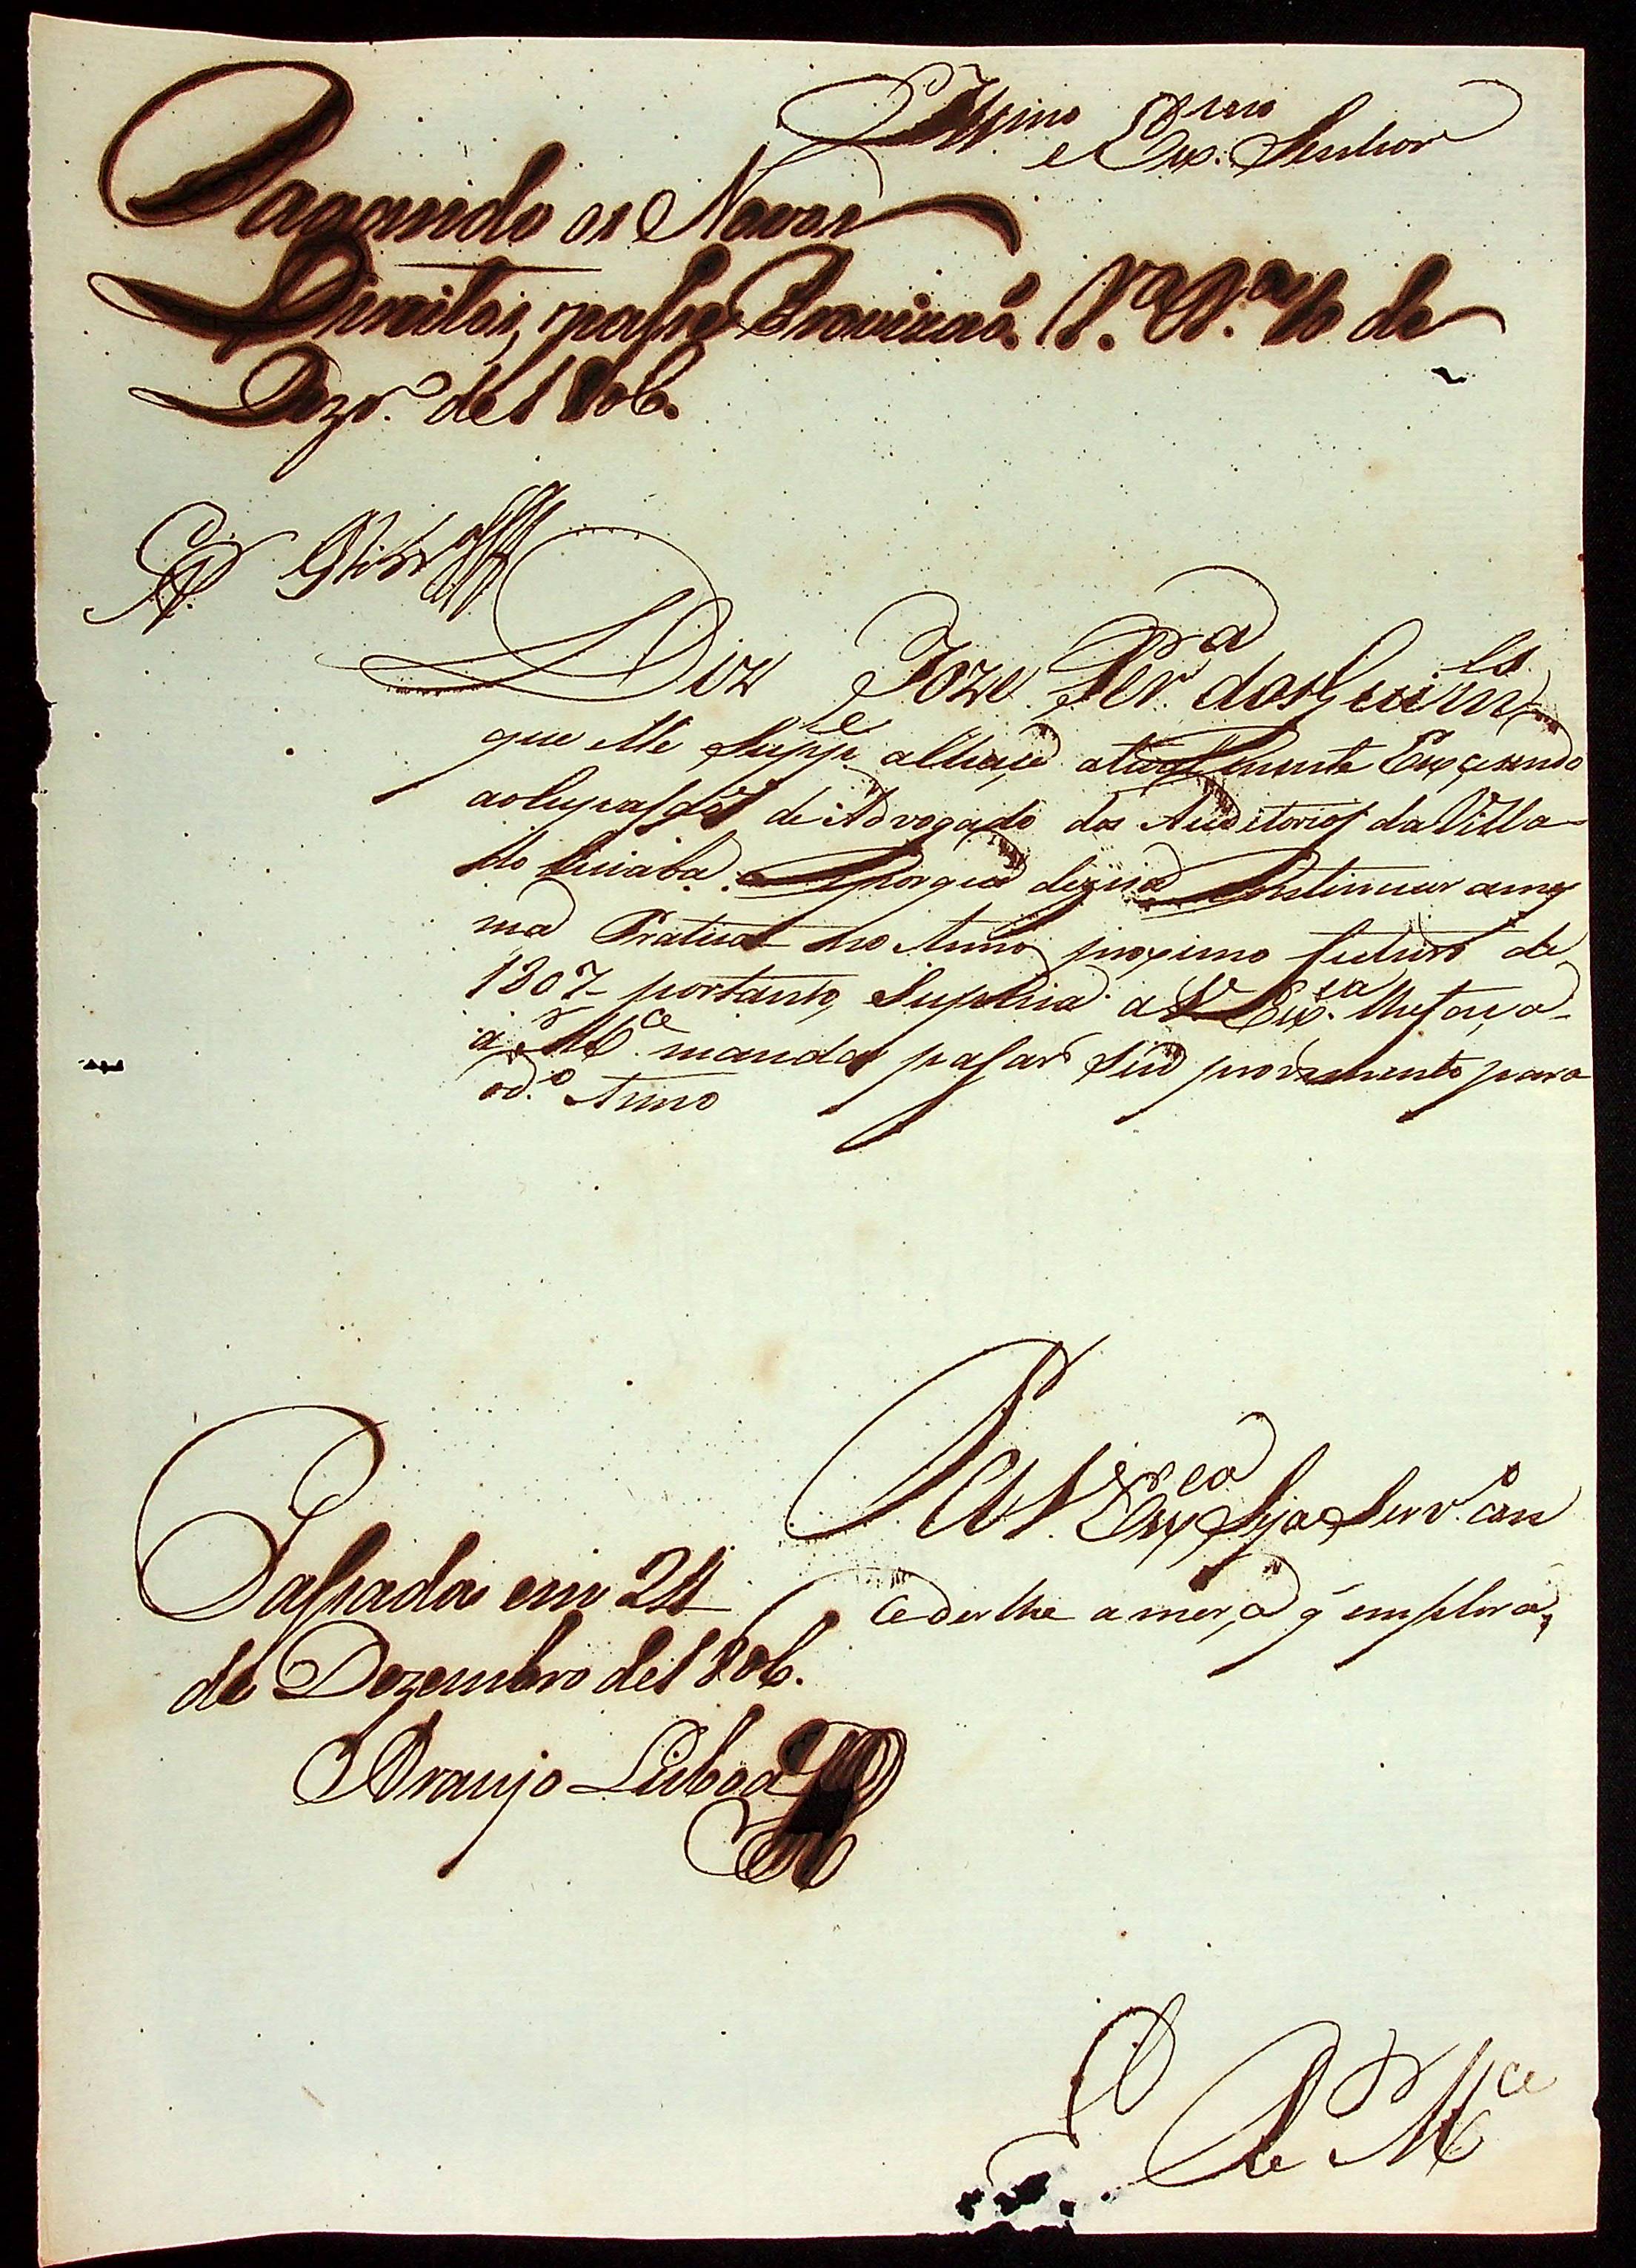 Illmo e Exmo. Senhor
Pagando os Novos
Direitos, passe Provizaó. Va. Ba. 16 de
Dezro. de 1806.
Diz Joze Per.a dos Guim.es
que elle Supp.e alhaçe atualmente Exçersendo
a ocupasaõ de Advogado dos Auditorios da Villa
do Cuiaba. E porque dezeia Continuar a mes
ma Pratica no Anno proximo futuro de
1807 portanto, Suplica a V. Ex.ca lhe faça
a M.ce mandar pasar seu provimento para
o d.o Anno
P. a V. Ex.ca Seja Serv.o con
cederlhe a merçe q̃ emplora,
Passada em 24
de Dezembro de 1806.
Araujo Lisboa
E R M.ce